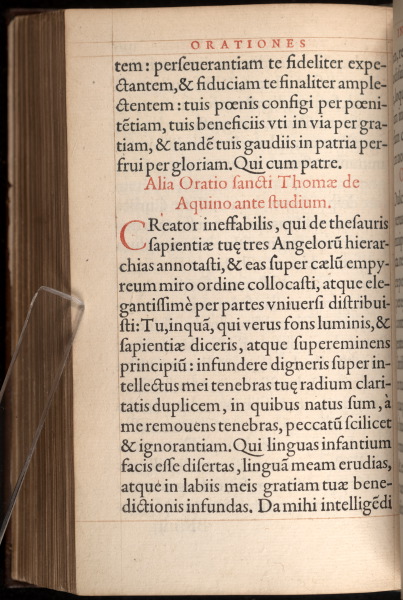 ORATIONES
tem: perſeuerantiam te fideliter expe-
ctantem, & fiduciam te finaliter ample-
ctentem: tuis pœnis configi per pœni-
tẽtiam, tuis beneficiis vti in via per gra-
tiam, & tandẽ tuis gaudiis in patria per-
frui per gloriam. Qui cum patre.
Alia Oratio ſancti Thomæ de
Aquino ante ſtudium.
CReator ineffabilis, qui de theſauris
ſapientiæ tuę tres Angelorũ hierar-
chias annotaſti, & eas ſuper cælũ empy-
reum miro ordine collocaſti, atque ele-
gantiſſimè per partes vniuerſi diſtribui-
ſti: Tu, inquã, qui verus fons luminis, &
ſapientiæ diceris, atque ſupereminens
principiũ: infundere digneris ſuper in-
tellectus mei tenebras tuę radium clari-
tatis duplicem, in quibus natus ſum, à
me remouens tenebras, peccatũ ſcilicet
& ignorantiam. Qui linguas infantium
facis eſſe diſertas, linguã meam erudias,
atque in labiis meis gratiam tuæ bene-
dictionis infundas. Da mihi intelligẽdi